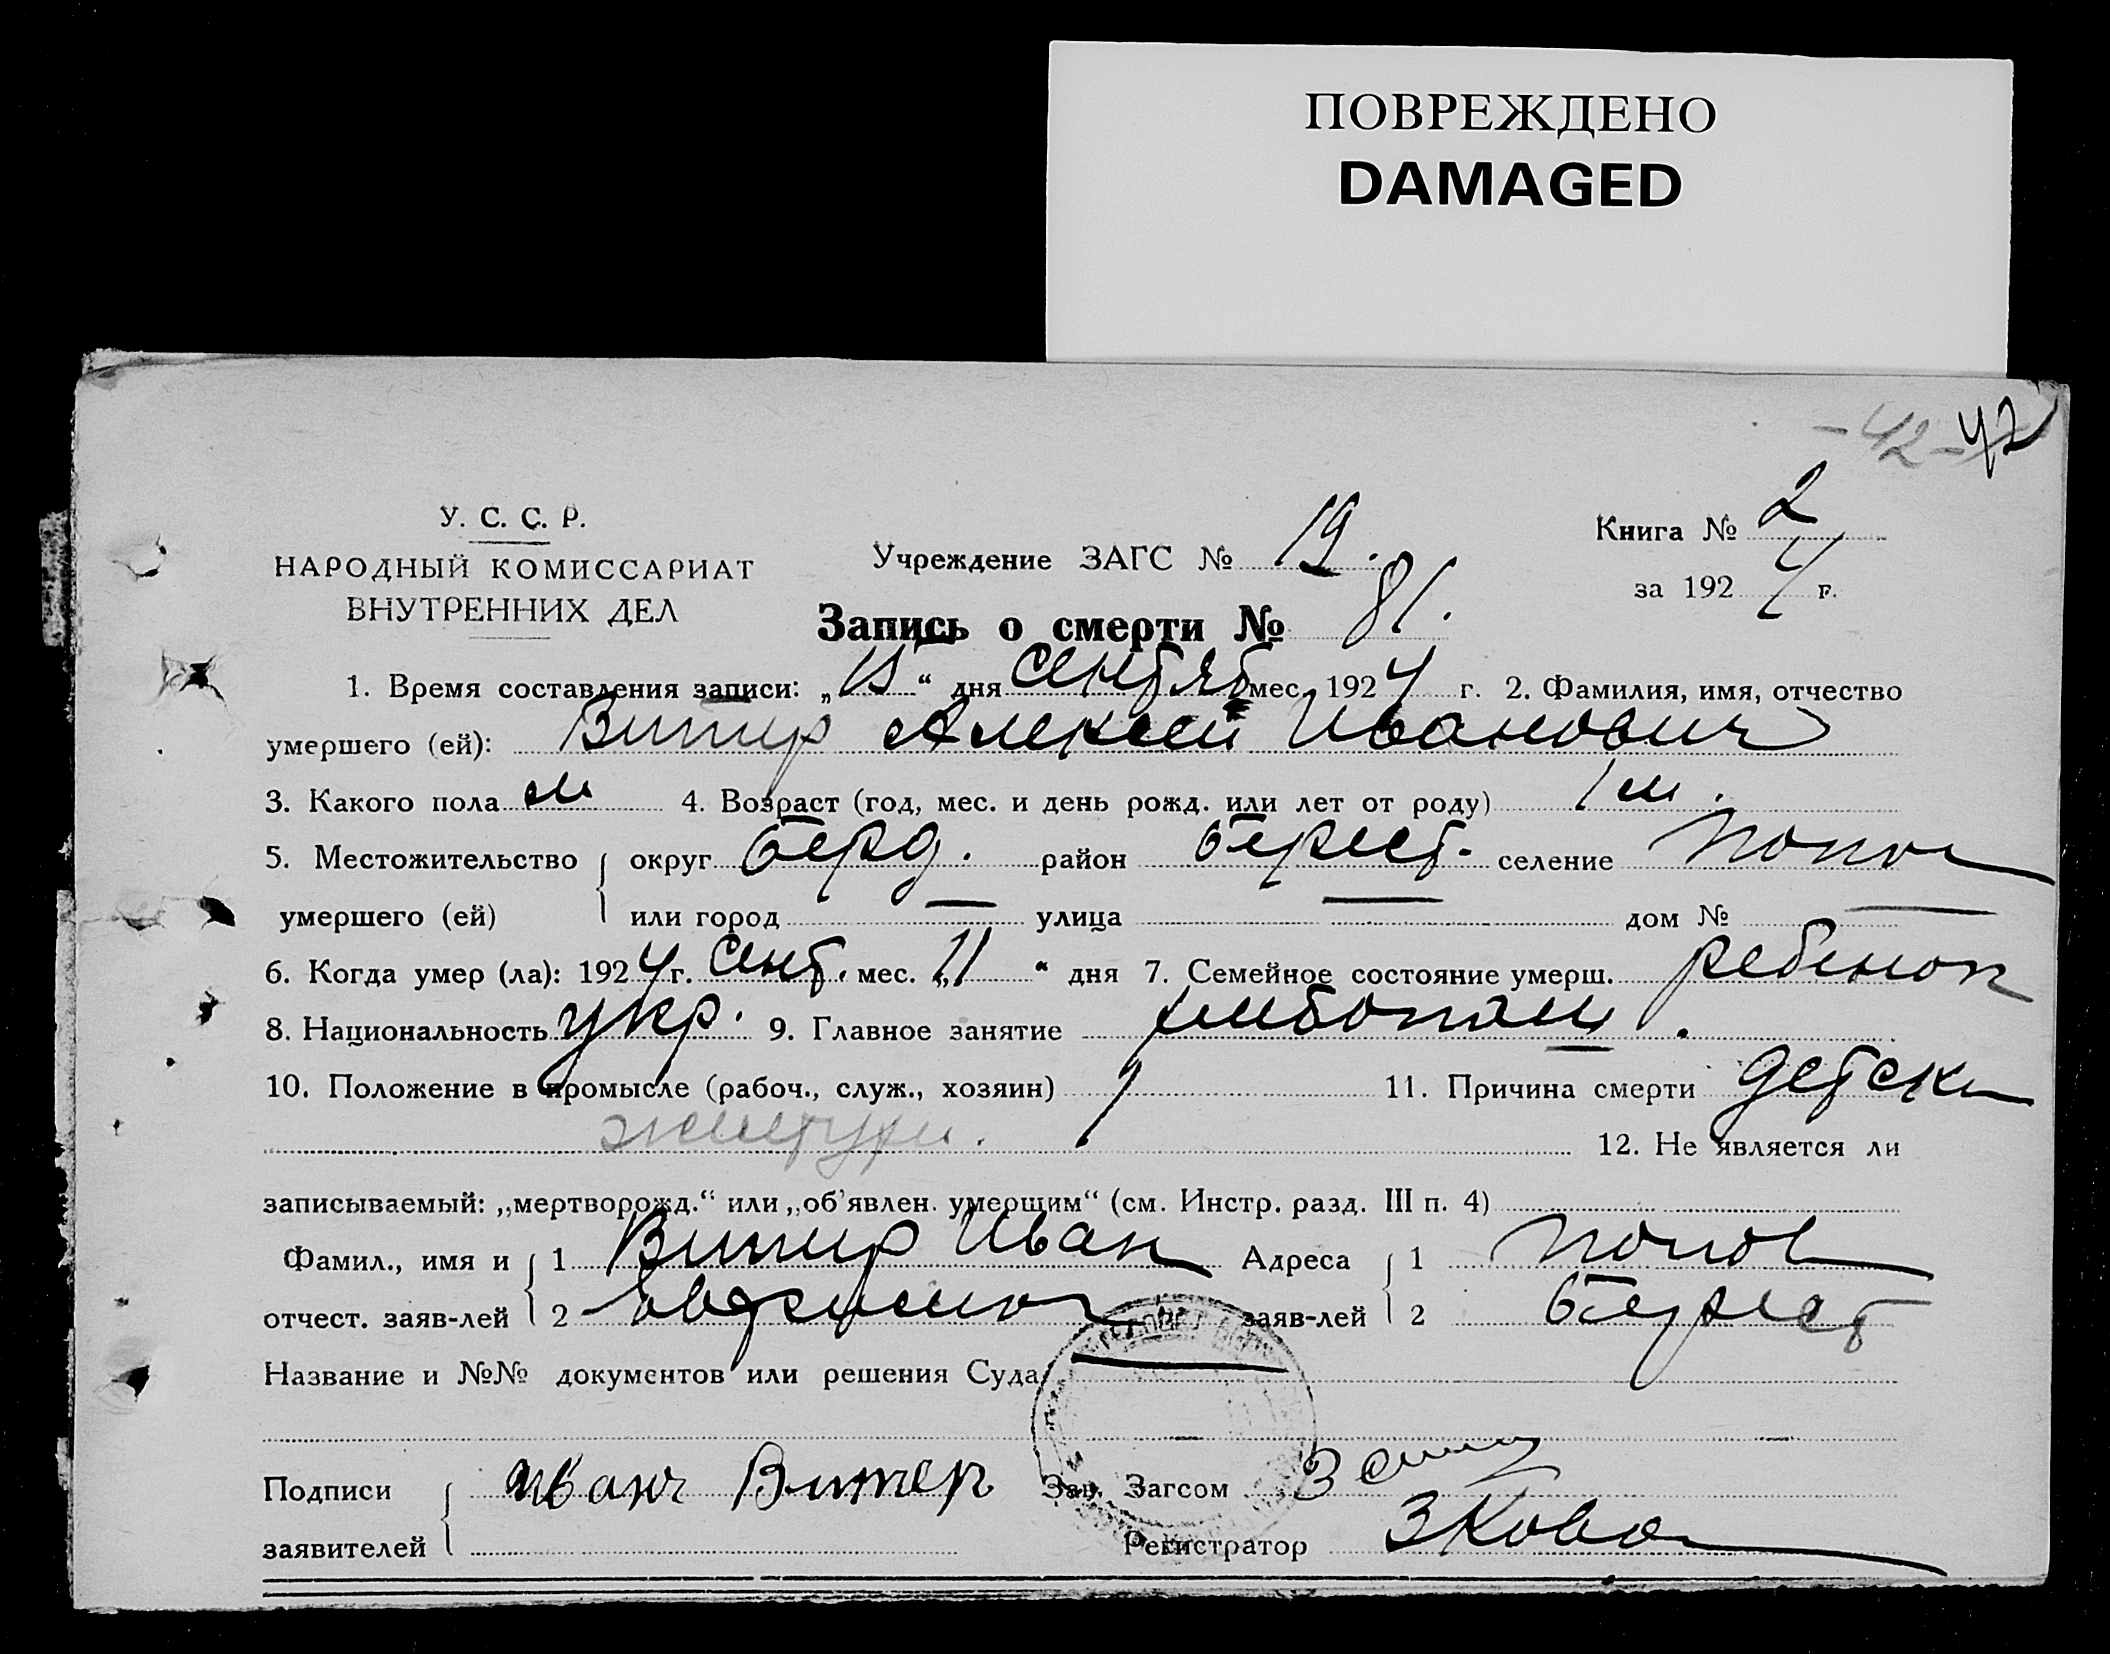 ПОВРЕЖДЕНО
DAMAGED
-42- 42
У. С. С. Р.
НАРОДНЫЙ КОМИССАРИАТ
ВНУТРЕННИХ ДЕЛ
Учреждение ЗАГС № 19.
Книга № 2
за 1924 г.
Запись о смерти № 81.
1. Время составления записи: „15“ дня сентяб мес. 1924 г. 2. Фамилия, имя, отчество
умершего (ей): Витир Алексей Иванович
3. Какого пола м 4. Возраст (год, мес. и день рожд. или лет от роду) 1 м.
5. Местожительство округ Берд. район Берест. селение Попов
умершего (ей) или город — улица — дом № —
6. Когда умер (ла): 1924 г. сент. мес. „11“ дня 7. Семейное состояние умерш. ребенок
8. Национальность укр. 9. Главное занятие
10. Положение в промысле (рабоч., служ., хозяин) 11. Причина смерти детски
12. Не является ли
записываемый: „мертворожд.“ или „об'явлен. умершим“ (см. Инстр. разд. III п. 4)
Фамил., имя и 1 Витир Иван Адреса 1 Попов
отчест. заяв-лей 2 заяв-лей 2 Берест
Название и №№ документов или решения Суда —
Подписи Иван Витер Зав. Загсом
заявителей Регистратор